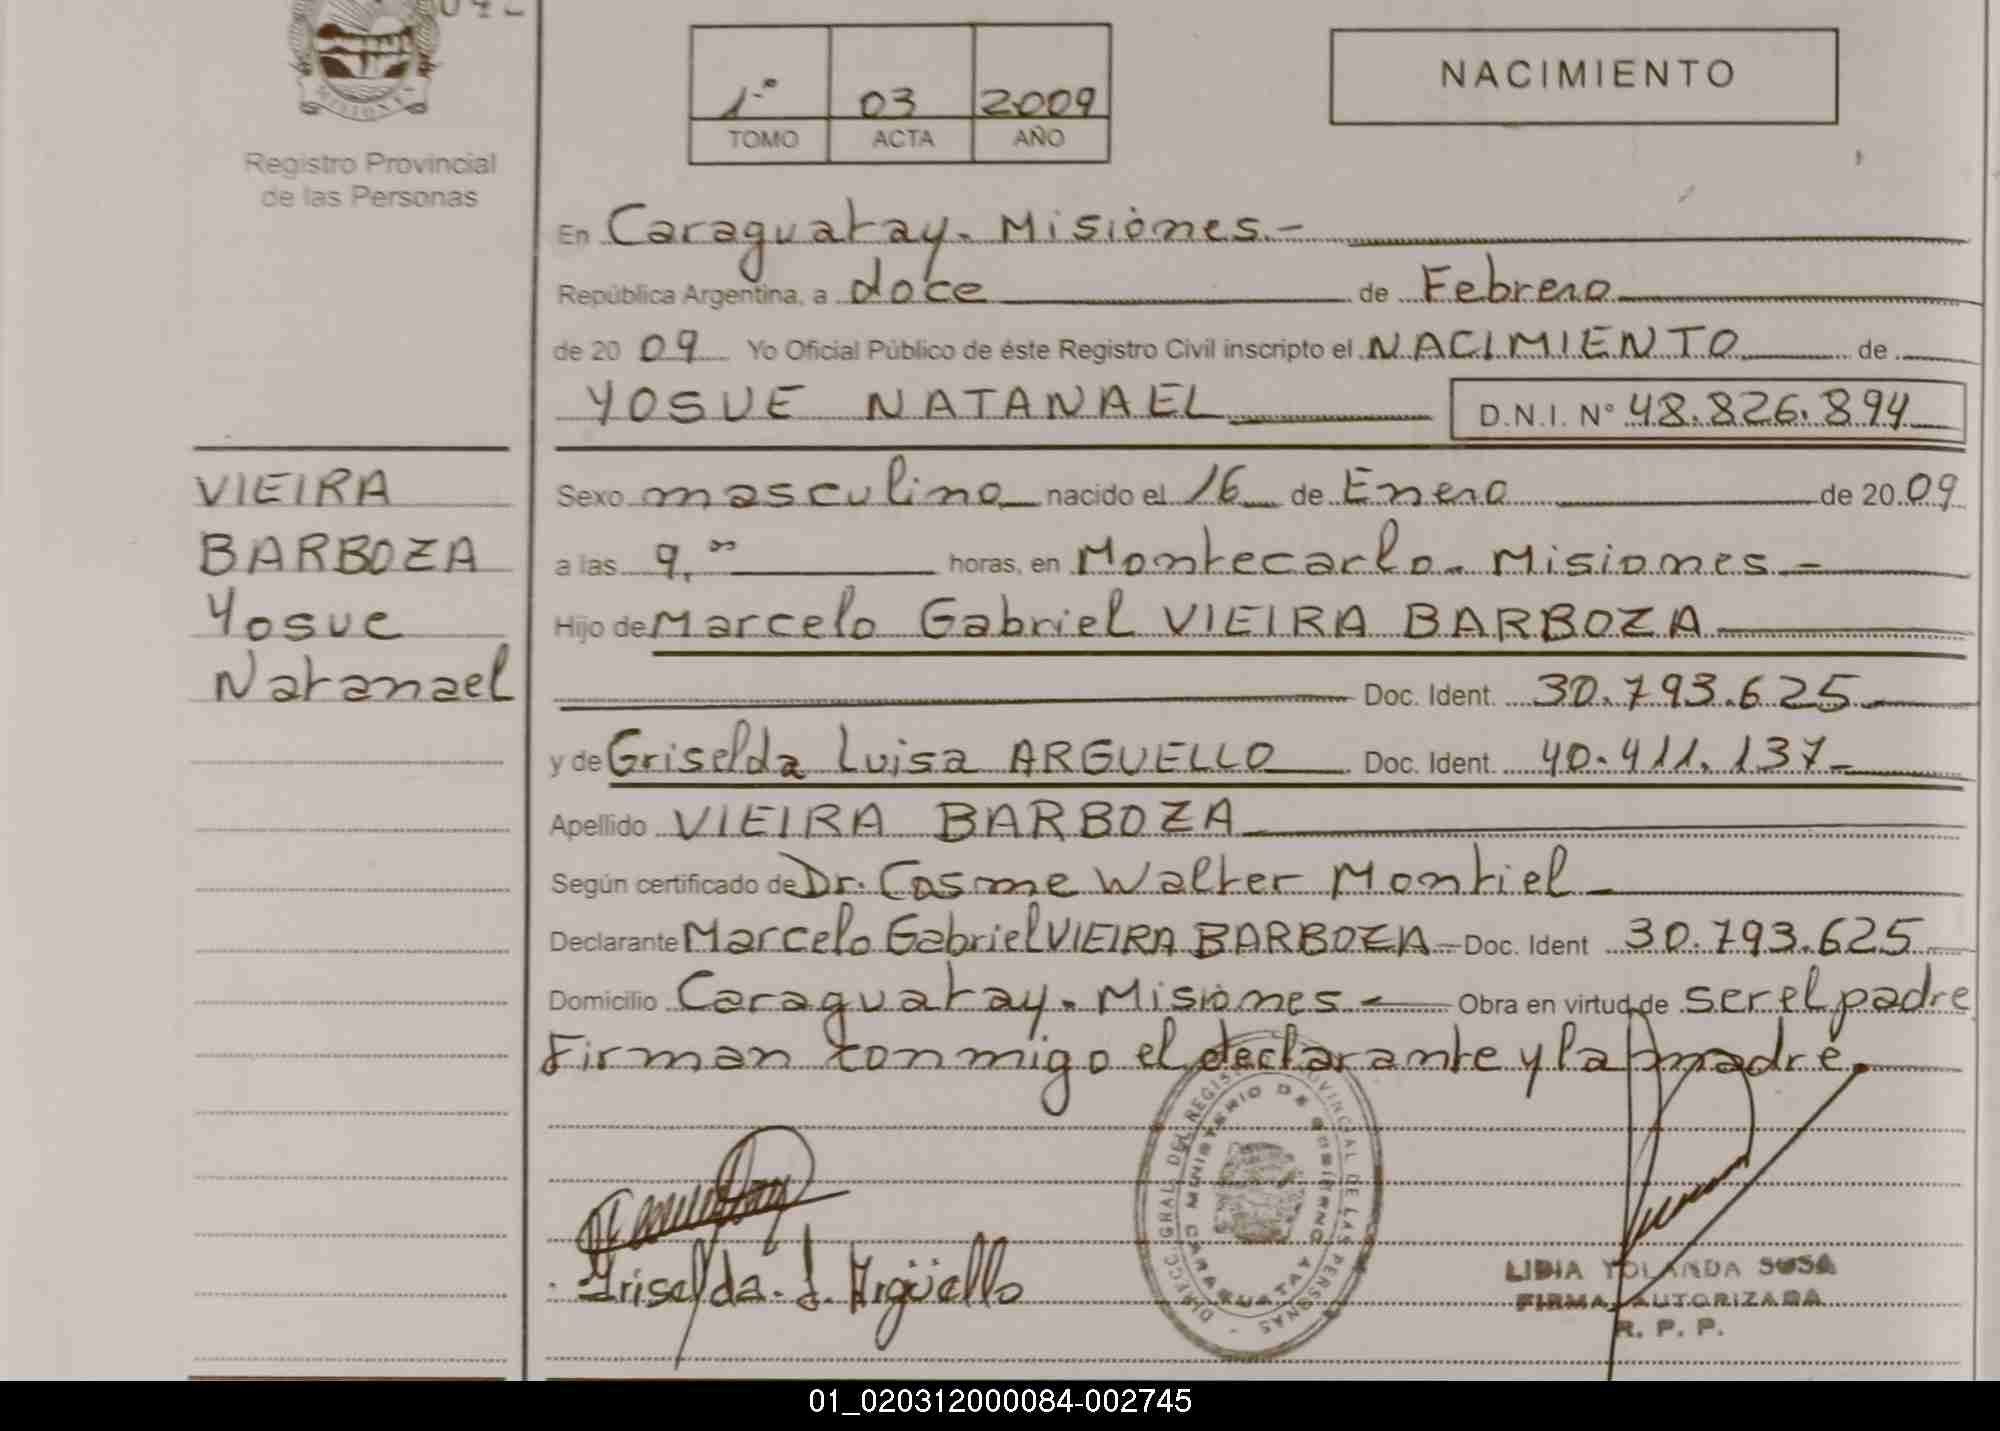 MISIONES
Registro Provincial
de las Personas
1.º 03 2009
TOMO ACTA AÑO
NACIMIENTO
En Caraguatay - Misiones.-
República Argentina, a doce de Febrero
de 20 09 Yo Oficial Público de éste Registro Civil inscripto el NACIMIENTO de
YOSUE NATANAEL D.N.I. Nº 48.826.894
VIEIRA
BARBOZA
Yosue
Natanael
Sexo masculino nacido el 16 de Enero de 20 09
a las 9,⁰⁰ horas, en Montecarlo - Misiones -
Hijo de Marcelo Gabriel VIEIRA BARBOZA
Doc. Ident. 30.793.625
y de Griselda Luisa ARGUELLO Doc. Ident. 40.411.137
Apellido VIEIRA BARBOZA
Según certificado de Dr. Cosme Walter Montiel
Declarante Marcelo Gabriel VIEIRA BARBOZA Doc. Ident 30.793.625
Domicilio Caraguatay - Misiones - Obra en virtud de ser el padre
Firman conmigo el declarante y la madre.
DIRECC. GRAL. DEL REGISTRO PROVINCIAL DE LAS PERSONAS -
MINISTERIO DE GOBIERNO
CARAGUATAY
Griselda. L. Argüello
LIDIA YOLANDA SOSA
FIRMA AUTORIZADA
R. P. P.
01_020312000084-002745